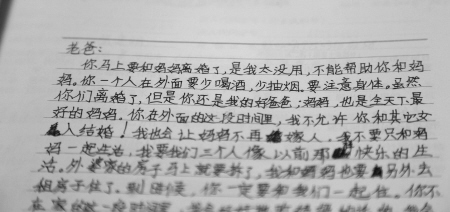 老爸：
你马上要和妈妈离婚了，是我太没用，不能帮助你和妈
妈。你一个人在外面要少喝酒，少抽烟，要注意身体。虽然
你们离婚了，但是你还是我的好爸爸；妈妈，也是全天下最
好的妈妈。你在外面的这段时间里，我不允许你和其它女
人结婚！我也会让妈妈不再嫁人。我不要只和妈
妈一起生活，我要我们三个人像以前那快乐的生
活。外婆家的房子马上就要拆了，我和妈妈也要另外去
租房子住了。到时候，你一定要和我们一起住。你不
在家的这一段时间里